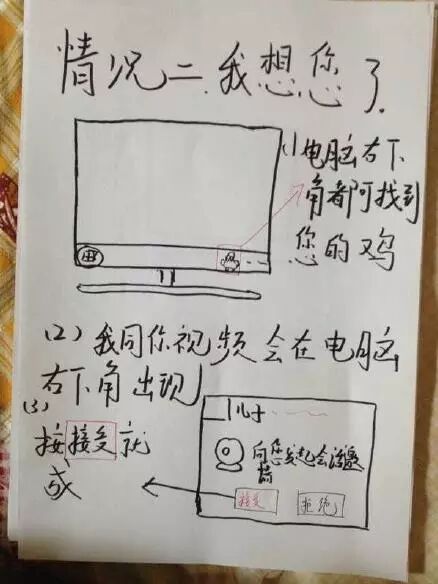 情况二.我想您了.
(1)电脑右下
角都可找到
您的鸡
(2)我同你视频会在电脑
右下角出现
(3)
按接受就
成
儿子
向您发起会话邀
请
接受 拒绝